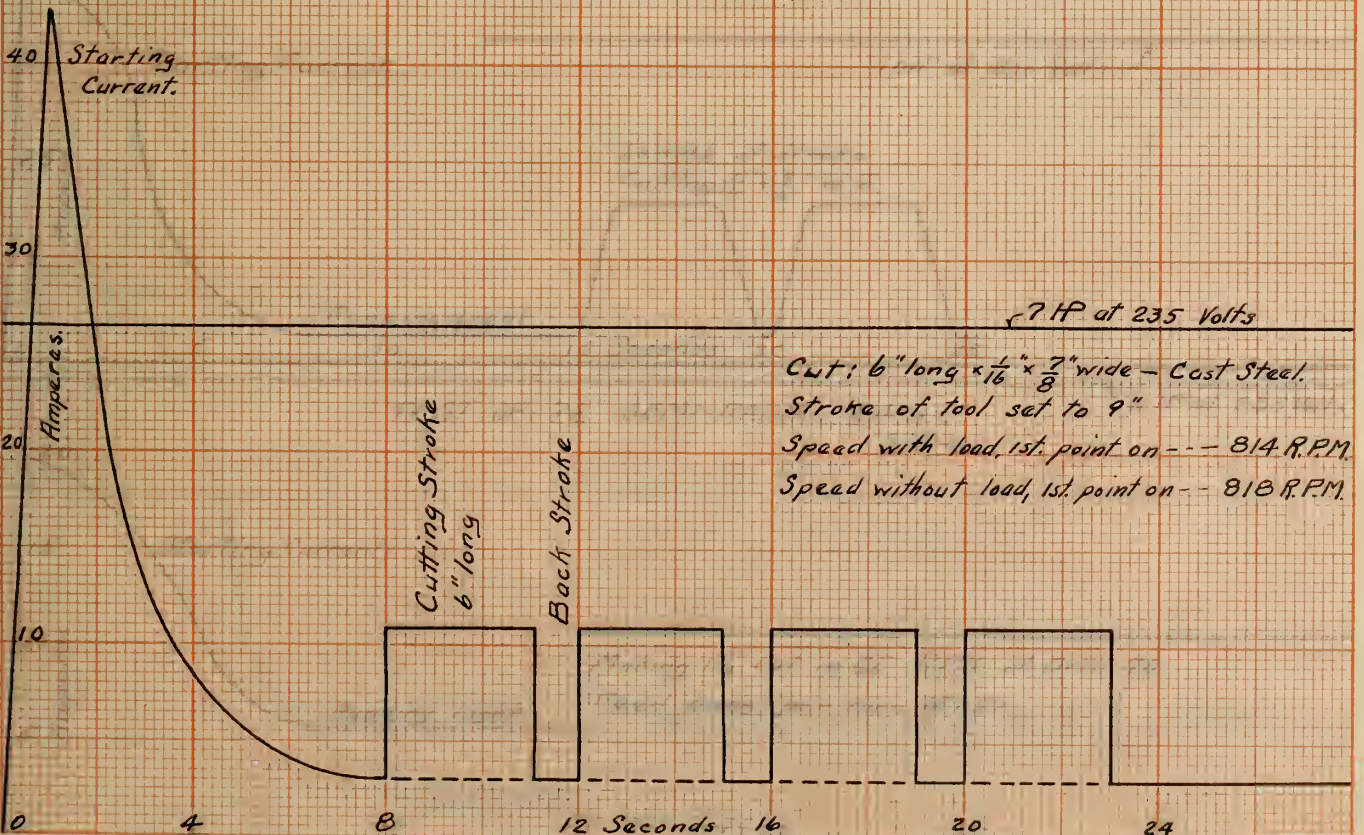 40
Starting
Current.
30
Amperes.
7 HP at 235 Volts
Cut: 6" long × 1/16" × 7/8" wide — Cast Steel.
Stroke of tool set to 9"
Speed with load, 1st. point on --- 814 R.P.M.
Speed without load, 1st. point on -- 818 R.P.M.
20
Cutting Stroke
6" long
Back Stroke
10
0 4 8 12 Seconds 16 20 24